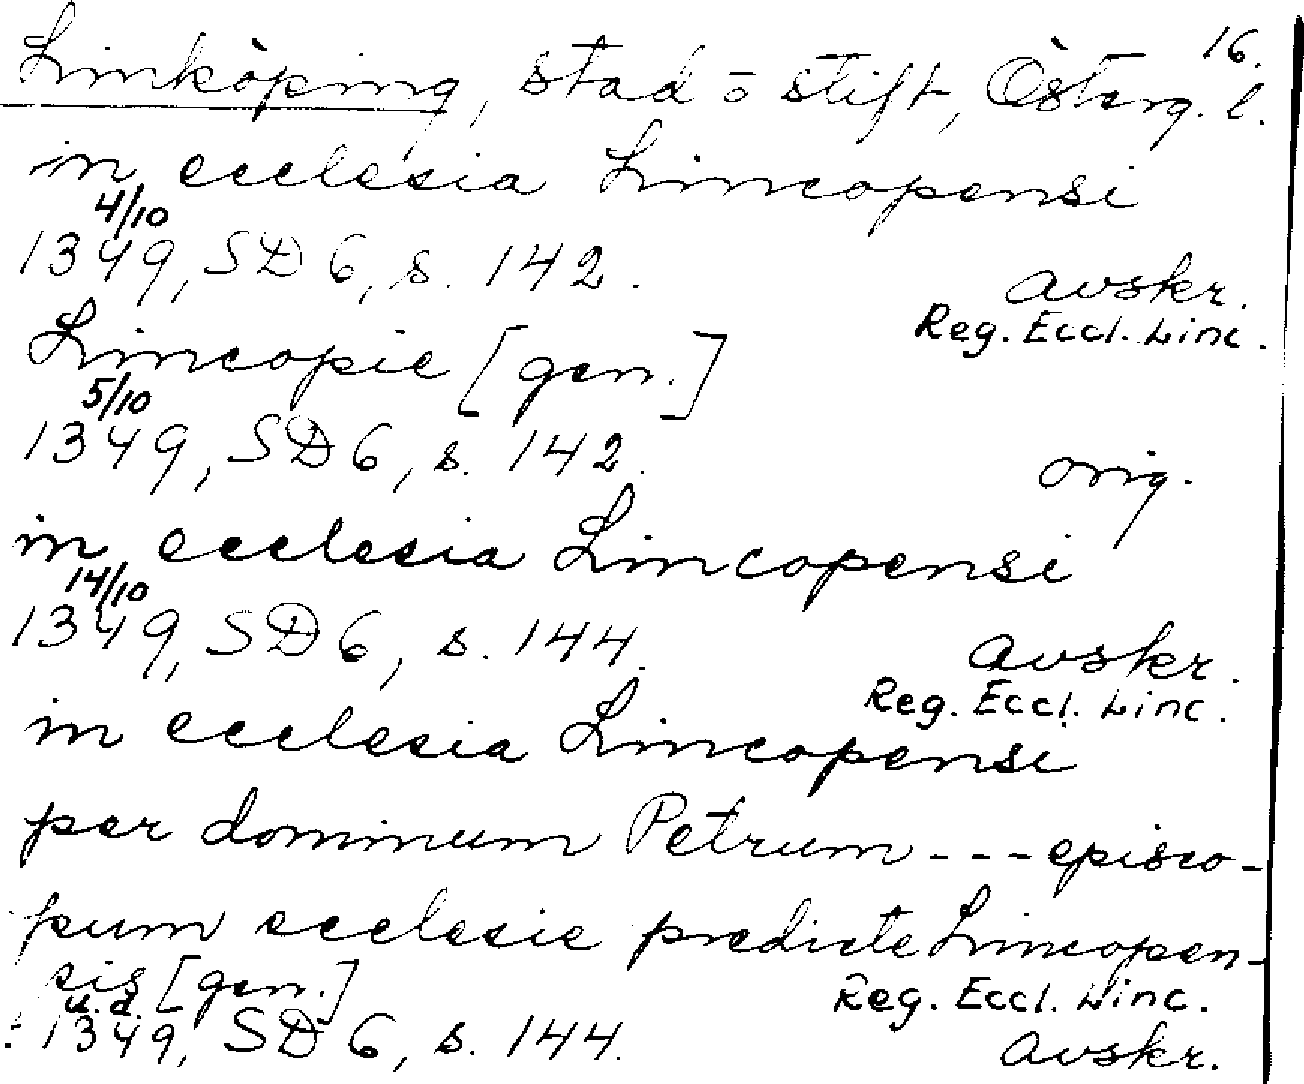 16.
Linköping, stad o stift, Österg. l.
in ecclesia Lincopensi
4/10
1349, SD 6, s. 142.
avskr.
Reg. Eccl. Linc.
Lincopie [gen.]
5/10
1349, SD 6, s. 142.
orig.
in ecclesia Lincopensi
14/10
1349, SD 6, s. 144.
avskr.
Reg. Eccl. Linc.
in ecclesia Lincopensi
per dominum Petrum - - - episco-
pum ecclesie predicte Lincopen-
sis [gen.]
Reg. Eccl. Linc.
u. d.
1349, SD 6, s. 144.
avskr.